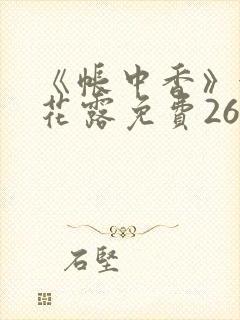 《帐中香》
花露免費26
石堅